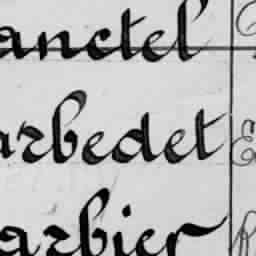 anctel
arbedet
arbier